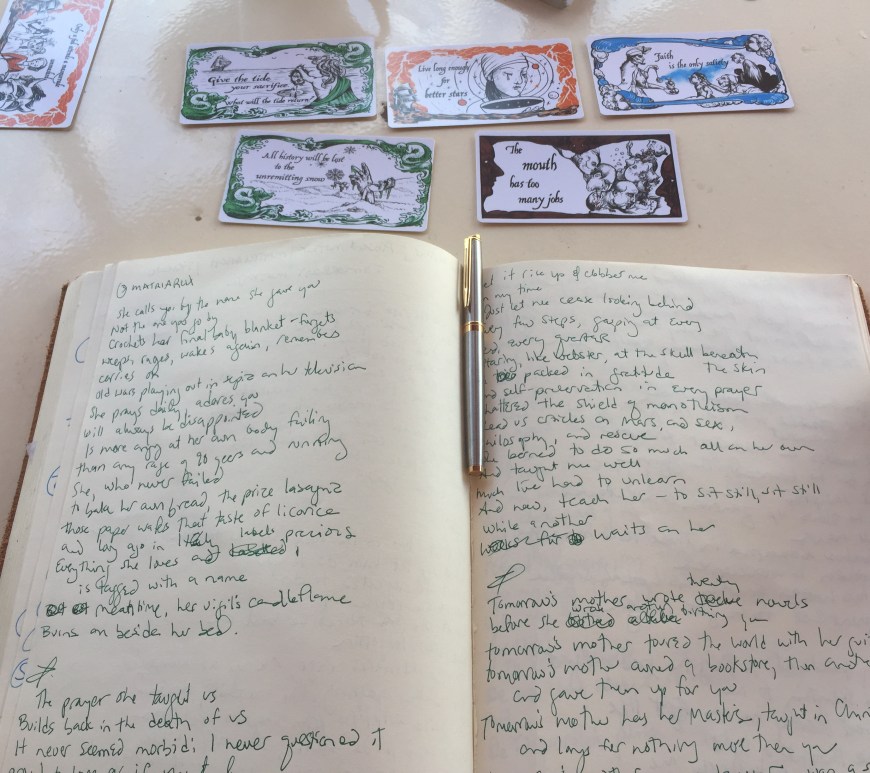 Give the tide
your sacrifice
what will the tide return
Live long enough
for
better stars
Faith
is the only satiety
All history will be lost
to the
unremitting snow
The
mouth
has too
many jobs
MATRIARCH
She calls you by the name she gave you
Not the one you go by
Crochets her final baby blanket - forgets
weeps, rages, wakes again, remembers
carries on
old wars playing out in sepia on her television
She prays daily, adores you
will always be disappointed
Is more angry at her own body failing
than any rage of 90 years and running
She, who never failed
to bake her own bread, the prize lasagna
those paper wafers that taste of licorice
and long ago in Italy labels precious
Everything she loves and
is tagged with a name
meantime, her vigil's candleflame
Burns on beside her bed.
The prayer she taught us
Builds back in the death of us
It never seemed morbid; I never questioned it
let it rise up & clobber me
in my time
Just let me cease looking behind
every few steps, gaping at every
every gesture
staring, like Webster, at the skull beneath
the skin
packed in gratitude
and self-preservation in every prayer
shattered the shield of monotheism
feed us cradles on Mars, and sex,
philosophy, and rescue
She learned to do so much all on her own
And taught me well
much I've had to unlearn
And now, teach her - to sit still, sit still
while another
waits on her
Tomorrow's mother wrote twenty novels
before she wrote another birthing you
tomorrow's mother toured the world with her
tomorrow's mother owned a bookstore, then
and gave them up for you
Tomorrow's mother has her Masters, taught in
and longs for nothing more than you